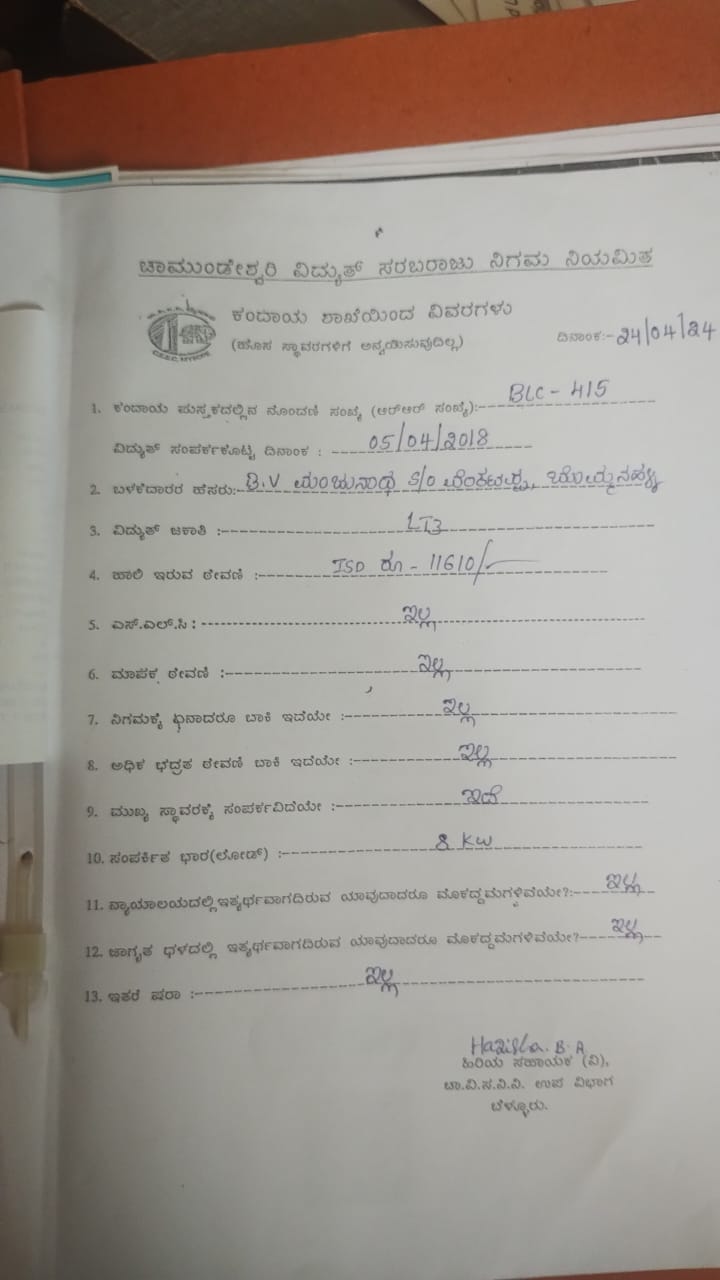 ಚಾಮುಂಡೇಶ್ವರಿ ವಿದ್ಯುತ್ ಸರಬರಾಜು ನಿಗಮ ನಿಯಮಿತ
ಕಂದಾಯ ಶಾಖೆಯಿಂದ ವಿವರಗಳು
(ಹೊಸ ಸ್ಥಾವರಗಳಿಗೆ ಅನ್ವಯಿಸುವುದಿಲ್ಲ)
ದಿನಾಂಕ:-24/04/24
C.E.S.C. MYSORE
1. ಕಂದಾಯ ಪುಸ್ತಕದಲ್ಲಿನ ನೊಂದಣಿ ಸಂಖ್ಯೆ (ಆರ್ಆರ್ ಸಂಖ್ಯೆ):- BLC - 415
ವಿದ್ಯುತ್ ಸಂಪರ್ಕಕೊಟ್ಟ ದಿನಾಂಕ : 05/04/2018
2. ಬಳಕೆದಾರರ ಹೆಸರು:- B.V ಮಂಜುನಾಥ S/O
3. ವಿದ್ಯುತ್ ಜಕಾತಿ :- LT3
4. ಹಾಲಿ ಇರುವ ಠೇವಣಿ :- ISD ರೂ - 11610/-
5. ಎಸ್.ಎಲ್.ಸಿ : ಇಲ್ಲ
6. ಮಾಪಕ ಠೇವಣಿ :- ಇಲ್ಲ
7. ನಿಗಮಕ್ಕೆ ಏನಾದರೂ ಬಾಕಿ ಇದೆಯೇ :- ಇಲ್ಲ
8. ಅಧಿಕ ಭದ್ರತ ಠೇವಣಿ ಬಾಕಿ ಇದೆಯೇ :- ಇಲ್ಲ
9. ಮುಖ್ಯ ಸ್ಥಾವರಕ್ಕೆ ಸಂಪರ್ಕವಿದೆಯೇ :- ಇದೆ
10. ಸಂಪರ್ಕಿತ ಭಾರ(ಲೋಡ್) :- 8 KW
11. ನ್ಯಾಯಾಲಯದಲ್ಲಿ ಇತ್ಯರ್ಥವಾಗದಿರುವ ಯಾವುದಾದರೂ ಮೊಕದ್ದಮಗಳಿವೆಯೇ?:- ಇಲ್ಲ
12. ಜಾಗೃತ ಧಳದಲ್ಲಿ ಇತ್ಯರ್ಥವಾಗದಿರುವ ಯಾವುದಾದರೂ ಮೊಕದ್ದಮಗಳಿವೆಯೇ?- ಇಲ್ಲ
13. ಇತರೆ ಷರಾ :- ಇಲ್ಲ
B. A
ಹಿರಿಯ ಸಹಾಯಕ (ವಿ),
ಚಾ.ವಿ.ಸ.ನಿ.ನಿ. ಉಪ ವಿಭಾಗ
ಬೆಳ್ಳೂರು.